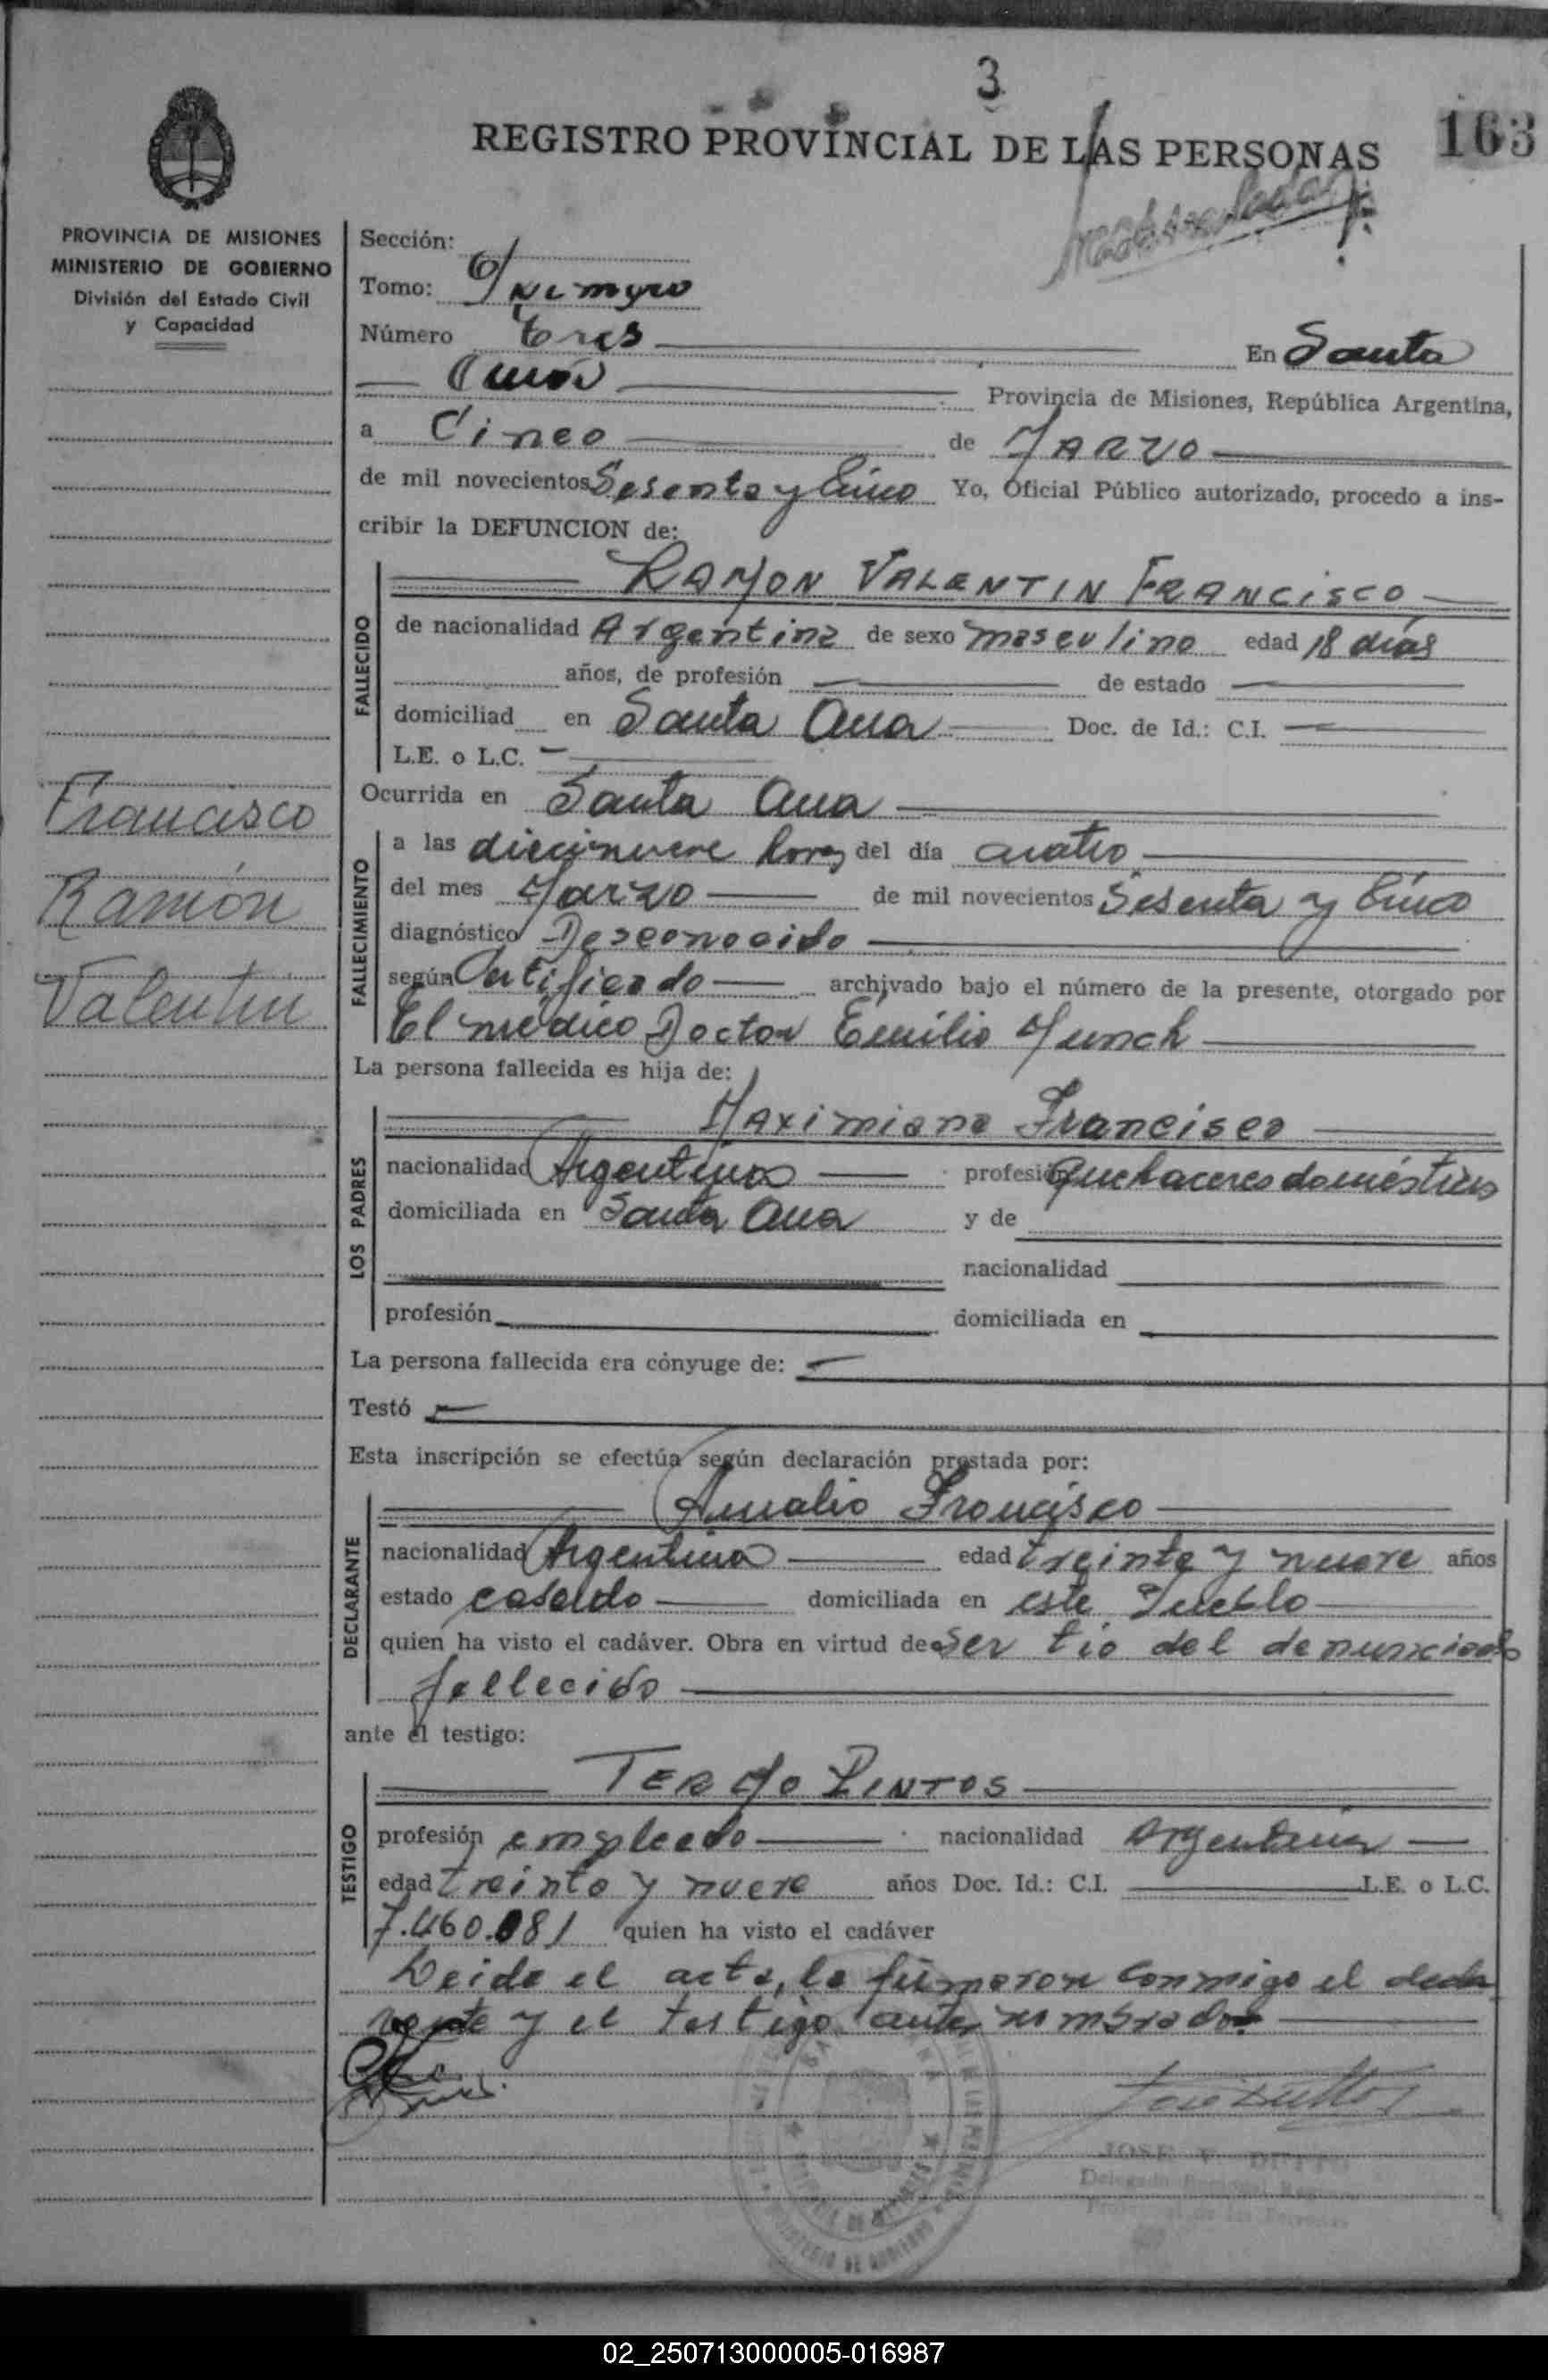 3
REGISTRO PROVINCIAL DE LAS PERSONAS
163
PROVINCIA DE MISIONES
MINISTERIO DE GOBIERNO
División del Estado Civil
y Capacidad
Sección:
Tomo: Primero
Número tres En Santa
Ana Provincia de Misiones, República Argentina,
a Cinco de MARZO
de mil novecientos Sesenta y Cinco Yo, Oficial Público autorizado, procedo a ins-
cribir la DEFUNCION de:
RAMON VALENTIN FRANCISCO
FALLECIDO
de nacionalidad Argentina de sexo masculino edad 18 días
años, de profesión de estado
domiciliad en Santa Ana Doc. de Id.: C.I.
L.E. o L.C.
Ocurrida en Santa Ana
Francisco
Ramón
Valentin
FALLECIMIENTO
a las diecinueve horas del día cuatro
del mes Marzo de mil novecientos Sesenta y Cinco
diagnóstico Desconocido
según Certificado archivado bajo el número de la presente, otorgado por
El medico Doctor Emilio Munch
La persona fallecida es hija de:
LOS PADRES
Maximiana Francisco
nacionalidad Argentina profesión quehaceres domésticos
domiciliada en Santa Ana y de
nacionalidad
profesión domiciliada en
La persona fallecida era cónyuge de:
Testó
Esta inscripción se efectúa según declaración prestada por:
DECLARANTE
Amalio Francisco
nacionalidad Argentina edad treinta y nueve años
estado casado domiciliada en este Pueblo
quien ha visto el cadáver. Obra en virtud de ser tio del denunciado
fallecido
ante el testigo:
TESTIGO
TERMO PINTOS
profesión empleado nacionalidad Argentina
edad treinta y nueve años Doc. Id.: C.I. L.E. o L.C.
7.460.081 quien ha visto el cadáver
Leida el acta, la firmaron conmigo el decla
rante y el testigo antes nombrados
02_250713000005-016987